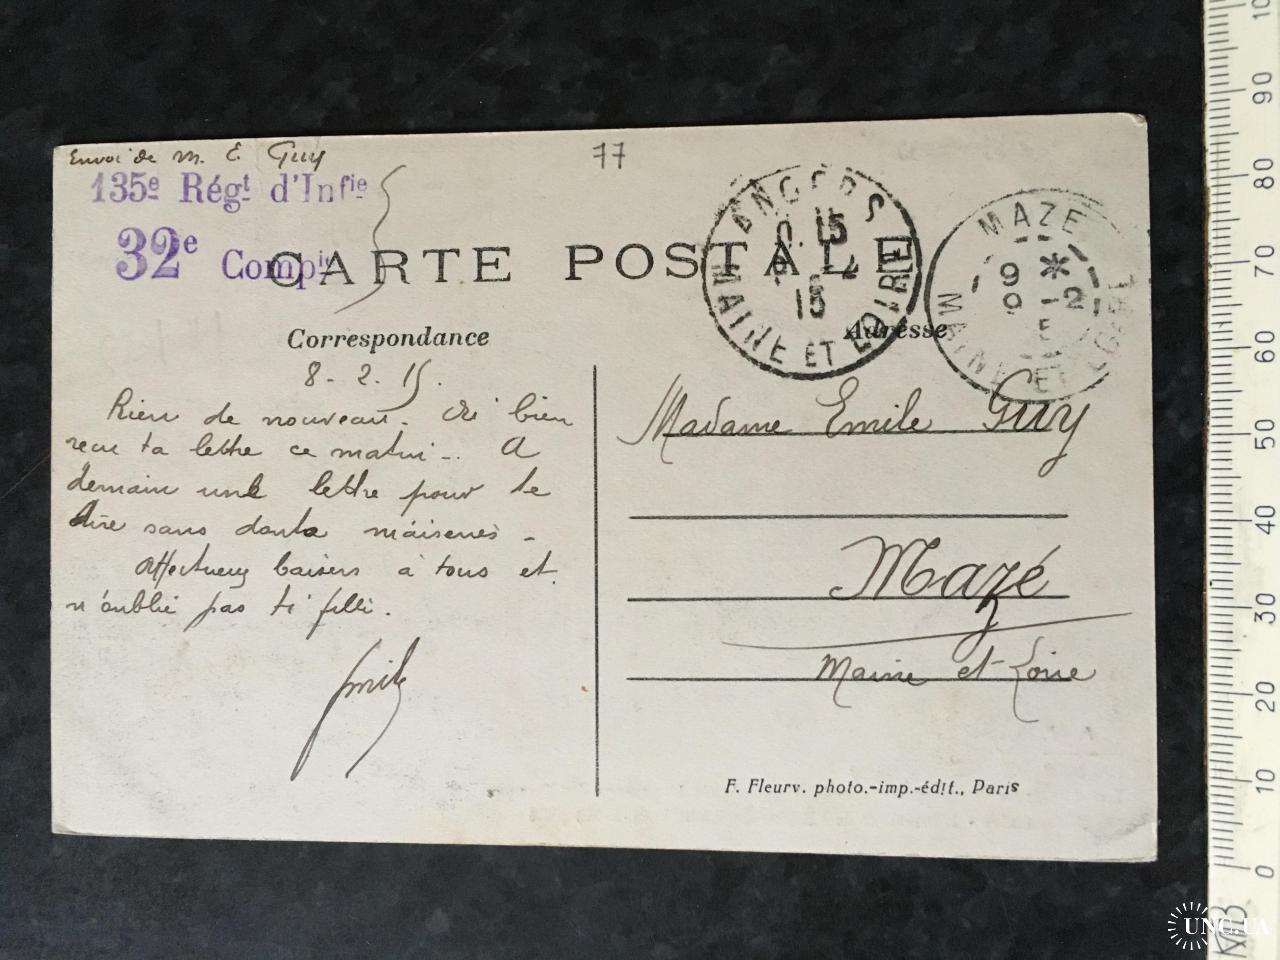 Envoi de M. E. Guy
77
135e Régt d'Infie
32e Compie
CARTE POSTALE
ANGERS
15
15
MAINE ET LOIRE
MAZE
9 *
9 -2
5
MAINE ET LOIRE
Correspondance
Adresse
8. 2. 15.
Rien de nouveau. Ai bien
reçu ta lettre ce matin. A
demain une lettre pour te
dire sans doute
Affectueux baisers à tous et
n'oublie pas
Emile
Madame Emile Guy
Mazé
Maine et Loire
F. Fleury. photo.-imp.-édit., Paris
0 10 20 30 40 50 60 70 80 90
UNC.UA